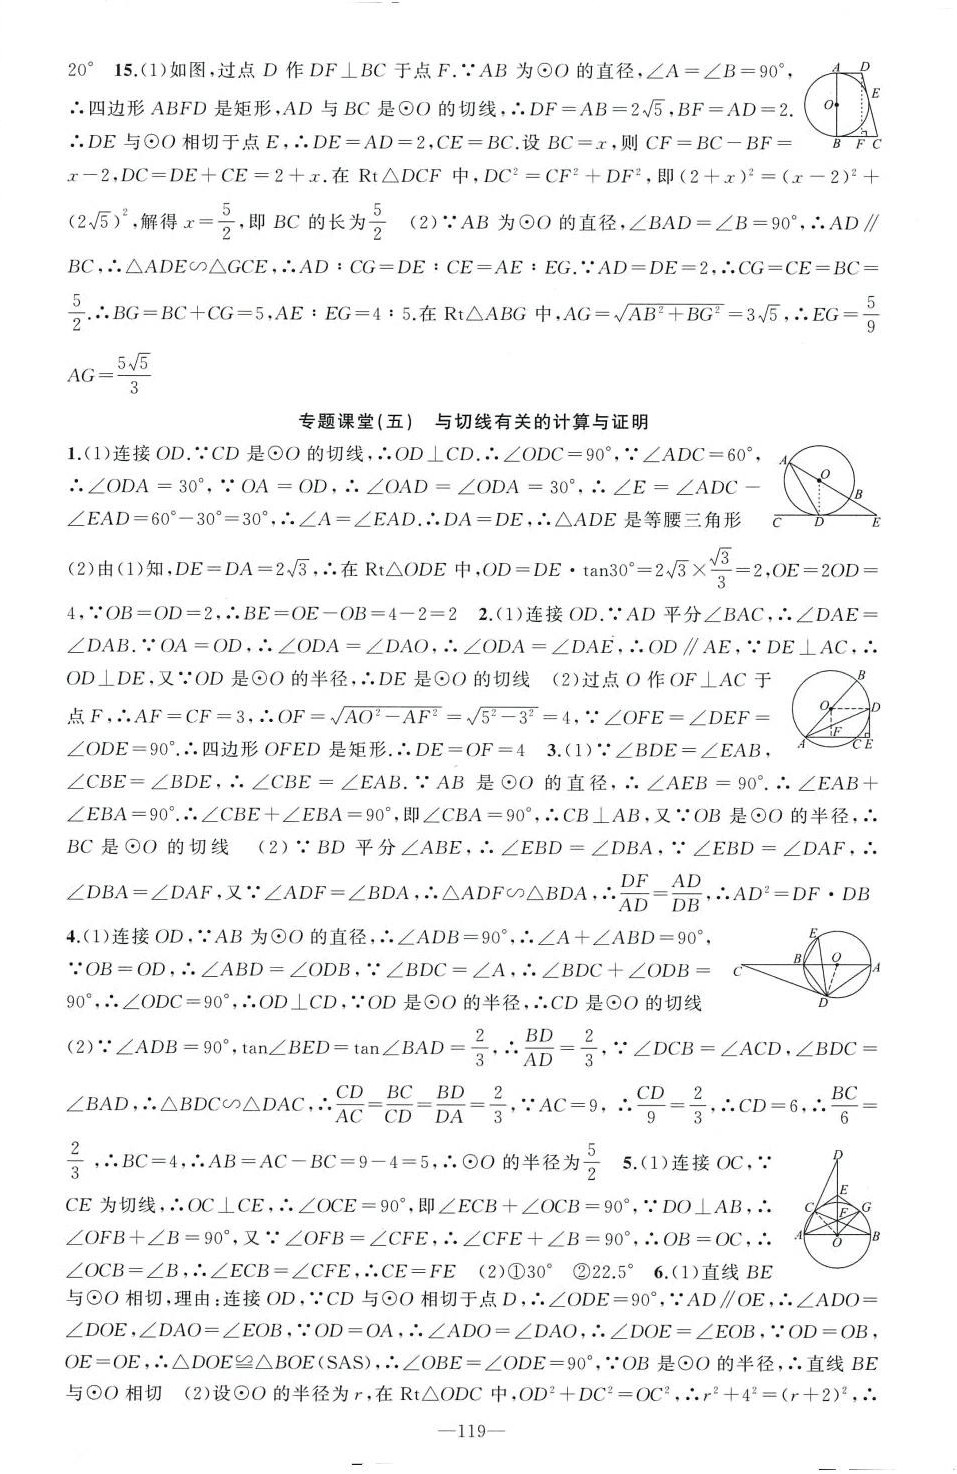 20° 15.(1)如图,过点 D 作 DF⊥BC 于点 F.∵AB 为⊙O 的直径,∠A=∠B=90°,
∴四边形 ABFD 是矩形,AD 与 BC 是⊙O 的切线,∴DF=AB=2√5,BF=AD=2.
∴DE 与⊙O 相切于点 E,∴DE=AD=2,CE=BC.设 BC=x,则 CF=BC-BF=
x-2,DC=DE+CE=2+x.在 Rt△DCF 中,DC²=CF²+DF²,即(2+x)²=(x-2)²+
(2√5)²,解得 x=5/2,即 BC 的长为5/2 (2)∵AB 为⊙O 的直径,∠BAD=∠B=90°,∴AD∥
BC,∴△ADE∽△GCE,∴AD:CG=DE:CE=AE:EG.∵AD=DE=2,∴CG=CE=BC=
5/2.∴BG=BC+CG=5,AE:EG=4:5.在 Rt△ABG 中,AG=√(AB²+BG²)=3√5,∴EG=5/9
AG=5√5/3
A D E O B F C
专题课堂(五) 与切线有关的计算与证明
1.(1)连接 OD.∵CD 是⊙O 的切线,∴OD⊥CD.∴∠ODC=90°,∵∠ADC=60°,
∴∠ODA=30°,∵OA=OD,∴∠OAD=∠ODA=30°,∴∠E=∠ADC-
∠EAD=60°-30°=30°,∴∠A=∠EAD.∴DA=DE,∴△ADE 是等腰三角形
A O B C D E
(2)由(1)知,DE=DA=2√3,∴在 Rt△ODE 中,OD=DE·tan30°=2√3×√3/3=2,OE=2OD=
4,∵OB=OD=2,∴BE=OE-OB=4-2=2 2.(1)连接 OD.∵AD 平分∠BAC,∴∠DAE=
∠DAB.∵OA=OD,∴∠ODA=∠DAO,∴∠ODA=∠DAE,∴OD∥AE,∵DE⊥AC,∴
OD⊥DE,又∵OD 是⊙O 的半径,∴DE 是⊙O 的切线 (2)过点 O 作 OF⊥AC 于
点 F,∴AF=CF=3,∴OF=√(AO²-AF²)=√(5²-3²)=4,∵∠OFE=∠DEF=
∠ODE=90°.∴四边形 OFED 是矩形.∴DE=OF=4 3.(1)∵∠BDE=∠EAB,
B O D F A C E
∠CBE=∠BDE,∴∠CBE=∠EAB.∵AB 是⊙O 的直径,∴∠AEB=90°.∴∠EAB+
∠EBA=90°.∴∠CBE+∠EBA=90°,即∠CBA=90°,∴CB⊥AB,又∵OB 是⊙O 的半径,∴
BC 是⊙O 的切线 (2)∵BD 平分∠ABE,∴∠EBD=∠DBA,∵∠EBD=∠DAF,∴
∠DBA=∠DAF,又∵∠ADF=∠BDA,∴△ADF∽△BDA,∴DF/AD=AD/DB,∴AD²=DF·DB
4.(1)连接 OD,∵AB 为⊙O 的直径,∴∠ADB=90°,∴∠A+∠ABD=90°,
∵OB=OD,∴∠ABD=∠ODB,∵∠BDC=∠A,∴∠BDC+∠ODB=
90°,∴∠ODC=90°,∴OD⊥CD,∵OD 是⊙O 的半径,∴CD 是⊙O 的切线
E B O C A D
(2)∵∠ADB=90°,tan∠BED=tan∠BAD=2/3,∴BD/AD=2/3,∵∠DCB=∠ACD,∠BDC=
∠BAD,∴△BDC∽△DAC,∴CD/AC=BC/CD=BD/DA=2/3,∵AC=9, ∴CD/9=2/3,∴CD=6,∴BC/6=
2/3,∴BC=4,∴AB=AC-BC=9-4=5,∴⊙O 的半径为5/2 5.(1)连接 OC,∵
CE 为切线,∴OC⊥CE,∴∠OCE=90°,即∠ECB+∠OCB=90°,∵DO⊥AB,∴
∠OFB+∠B=90°,又∵∠OFB=∠CFE,∴∠CFE+∠B=90°,∴OB=OC,∴
∠OCB=∠B,∴∠ECB=∠CFE,∴CE=FE (2)①30° ②22.5° 6.(1)直线 BE
D E C F G A O B
与⊙O 相切,理由:连接 OD,∵CD 与⊙O 相切于点 D,∴∠ODE=90°,∵AD∥OE,∴∠ADO=
∠DOE,∠DAO=∠EOB,∵OD=OA,∴∠ADO=∠DAO,∴∠DOE=∠EOB,∵OD=OB,
OE=OE,∴△DOE≌△BOE(SAS),∴∠OBE=∠ODE=90°,∵OB 是⊙O 的半径,∴直线 BE
与⊙O 相切 (2)设⊙O 的半径为 r,在 Rt△ODC 中,OD²+DC²=OC²,∴r²+4²=(r+2)²,∴
—119—